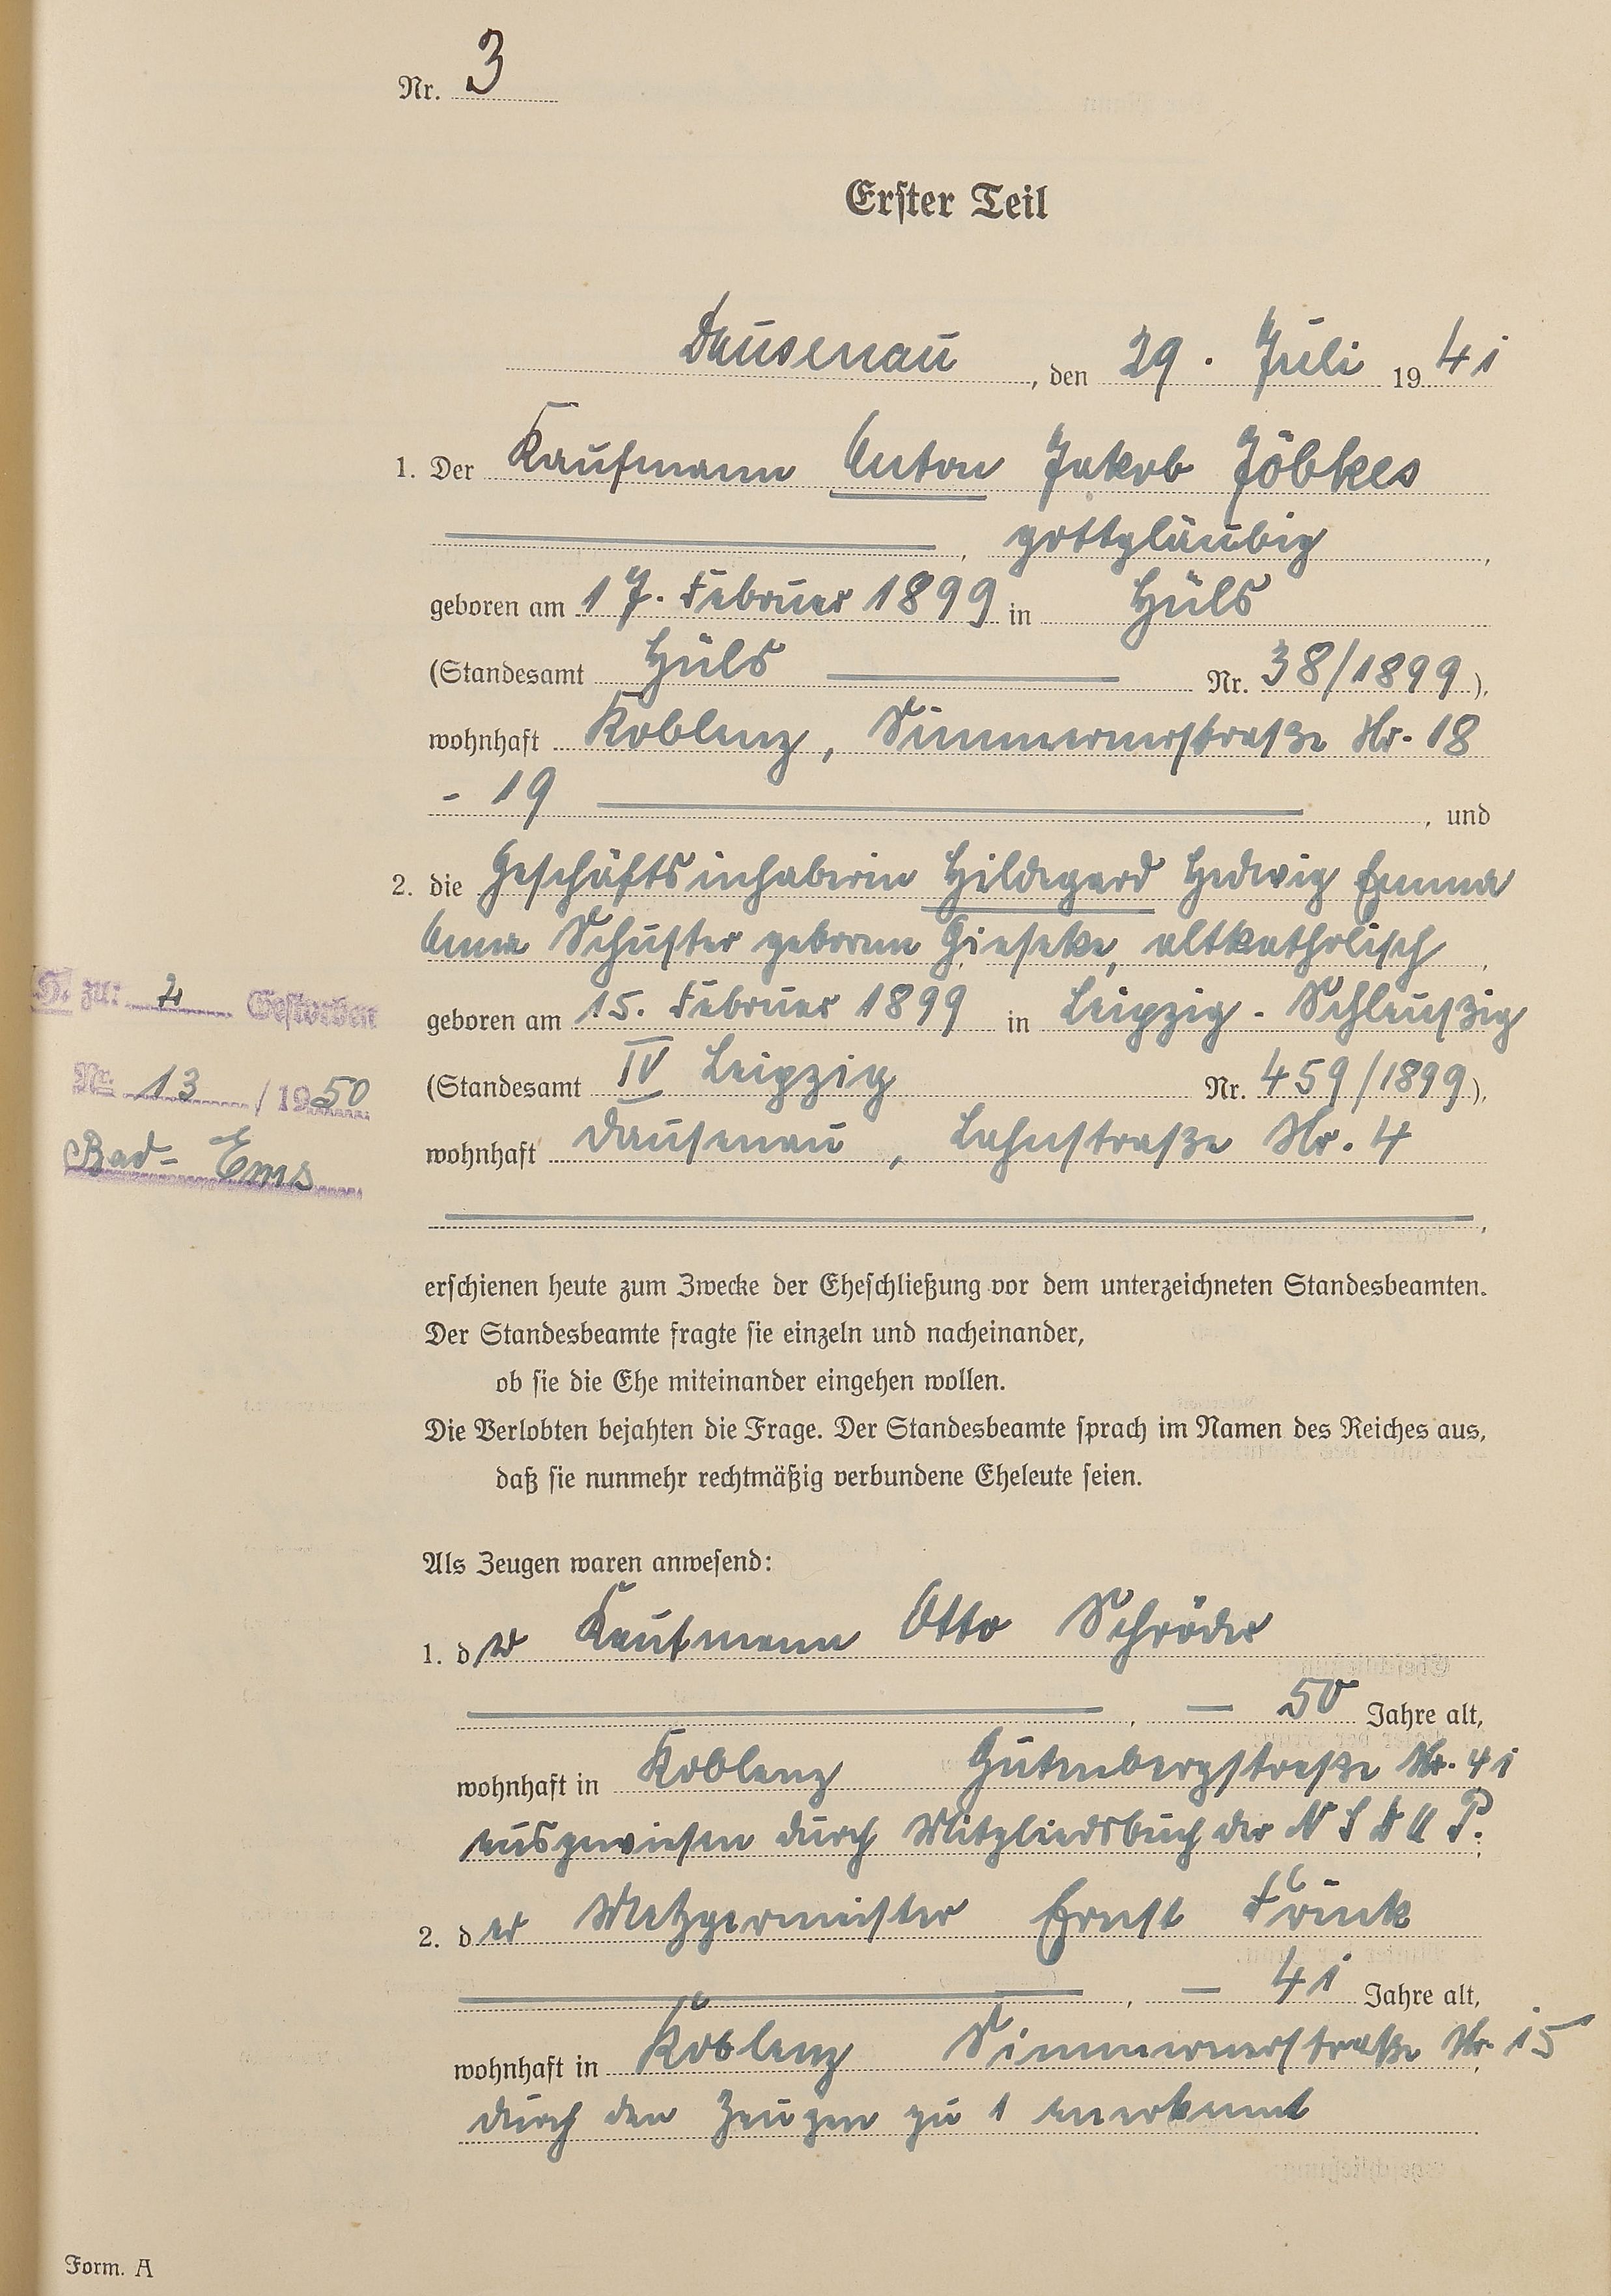 Nr. 3
Erster Teil
Dausenau, den 29. Juli 1941
1. Der Kaufmann Anton Jakob Jöbkes
, gottgläubig,
geboren am 17. Februar 1899 in Hüls
(Standesamt Hüls Nr. 38/1899),
wohnhaft Koblenz, Simmernerstraße Nr. 18
- 19, und
2. die Geschäftsinhaberin Hildegard Hedwig Emma
Anna Schuster geborene Gieseke, altkatholisch,
geboren am 15. Februar 1899 in Leipzig-Schleußig
(Standesamt IV Leipzig Nr. 459/1899),
wohnhaft Dausenau, Lahnstraße Nr. 4
,
H. zu: 2. Gestorben
Nr. 13 / 1950
Bad-Ems
erschienen heute zum Zwecke der Eheschließung vor dem unterzeichneten Standesbeamten.
Der Standesbeamte fragte sie einzeln und nacheinander,
ob sie die Ehe miteinander eingehen wollen.
Die Verlobten bejahten die Frage. Der Standesbeamte sprach im Namen des Reiches aus,
daß sie nunmehr rechtmäßig verbundene Eheleute seien.
Als Zeugen waren anwesend:
1. der Kaufmann Otto Schröder
, — 50 Jahre alt,
wohnhaft in Koblenz Gutenbergstraße Nr. 41
ausgewiesen durch Mitgliedsbuch der N S D A P.;
2. der Metzgermeister Ernst Frink
, — 41 Jahre alt,
wohnhaft in Koblenz Simmernerstraße Nr. 15
durch den Zeugen zu 1 anerkannt
Form. A